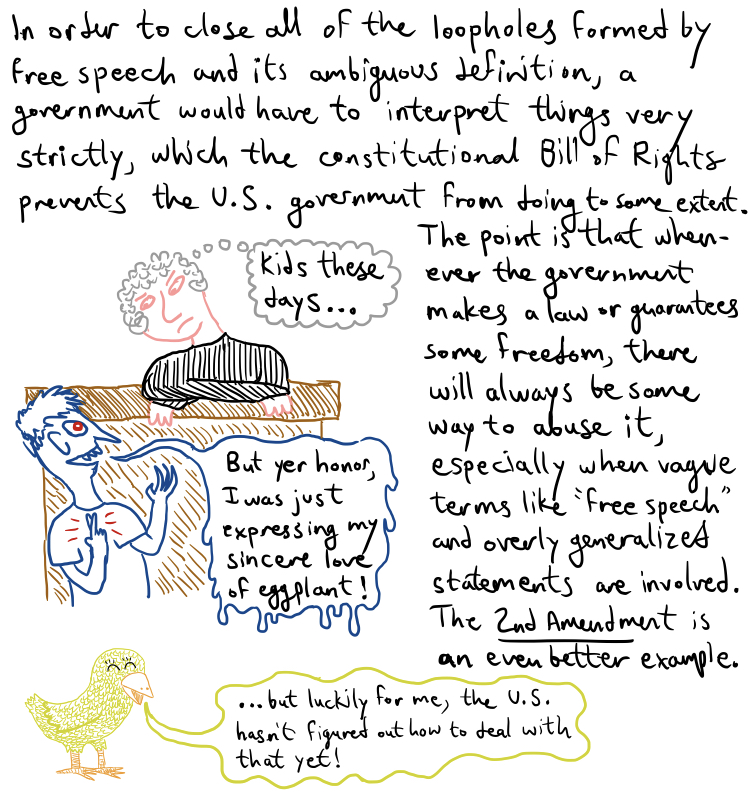 In order to close all of the loopholes formed by
free speech and its ambiguous definition, a
government would have to interpret things very
strictly, which the constitutional Bill of Rights
prevents the U.S. government from doing to some extent.
The point is that when-
ever the government
makes a law or guarantees
some freedom, there
will always be some
way to abuse it,
especially when vague
terms like "free speech"
and overly generalized
statements are involved.
The 2nd Amendment is
an even better example.
Kids these
days...
But yer honor,
I was just
expressing my
sincere love
of eggplant!
...but luckily for me, the U.S.
hasn't figured out how to deal with
that yet!